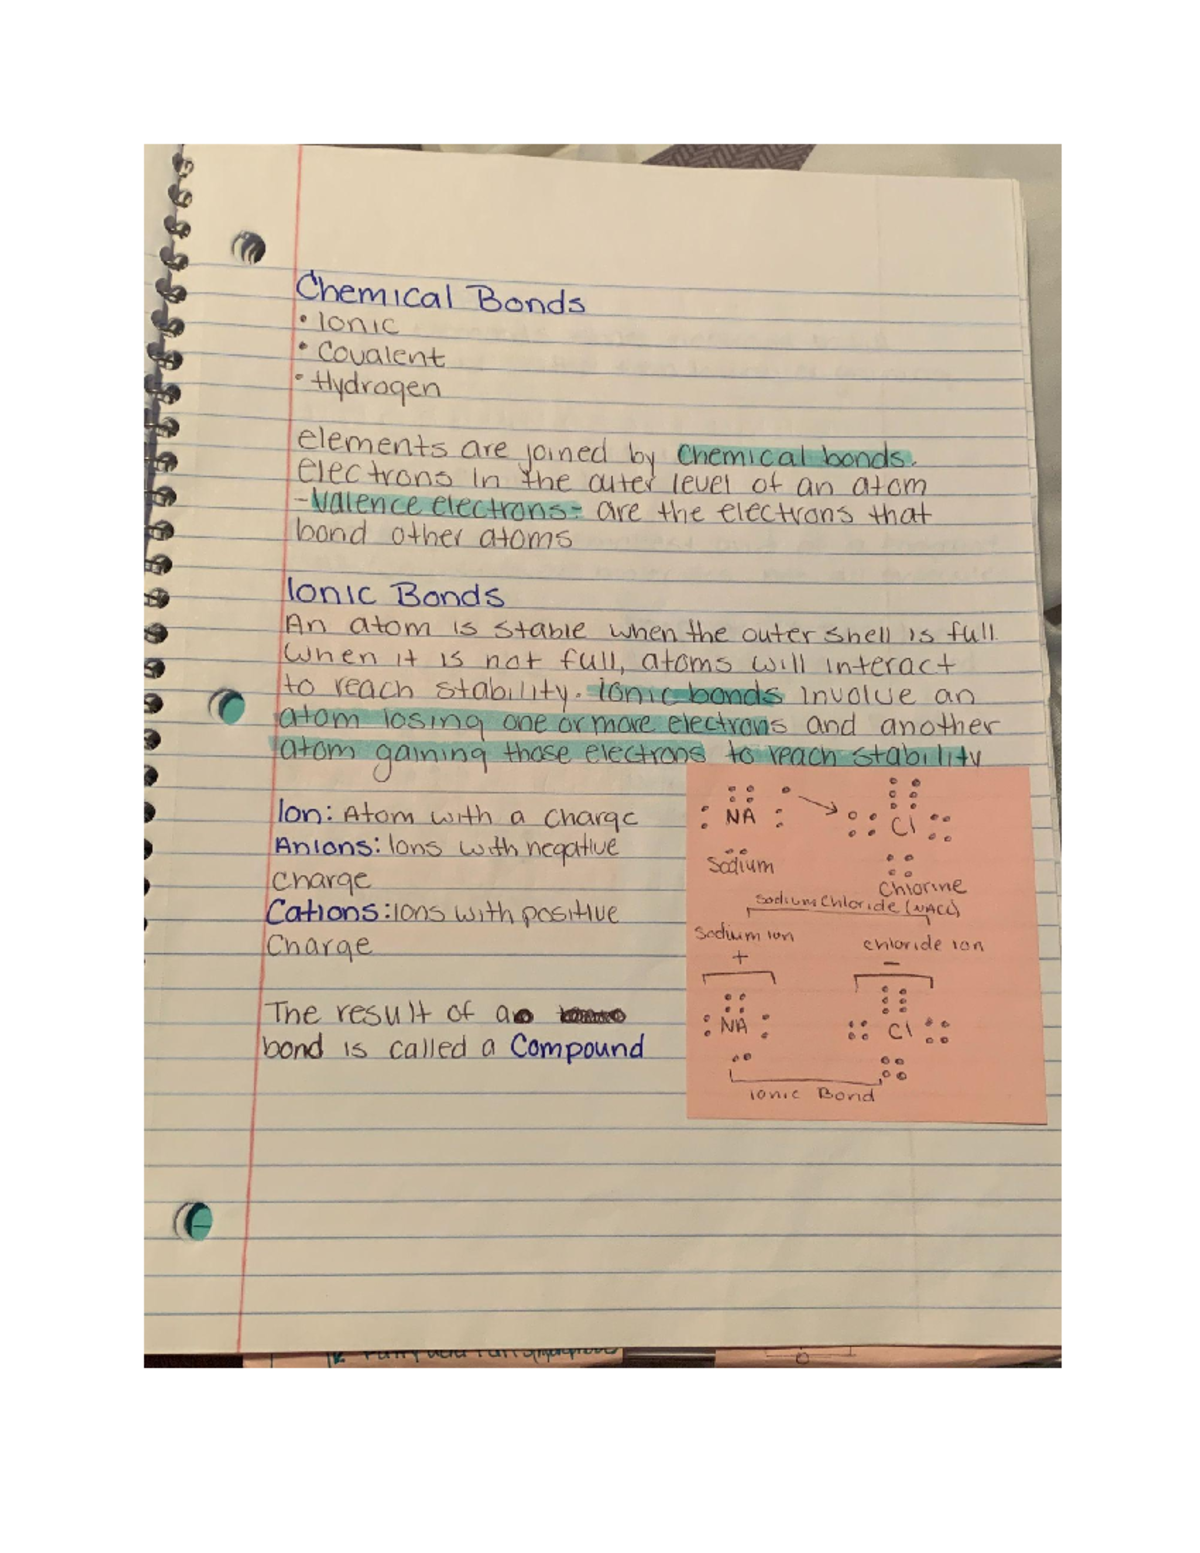 Chemical Bonds
• Ionic
• Covalent
• Hydrogen
elements are joined by Chemical bonds.
electrons in the outer level of an atom
-Valence electrons- are the electrons that
bond other atoms
Ionic Bonds
An atom is stable when the outer shell is full.
When it is not full, atoms will interact
to reach stability. Ionic bonds involve an
atom losing one or more electrons and another
atom gaining those electrons to reach stability
Ion: Atom with a charge
Anions: Ions with negative
Charge
Cations: Ions with positive
Charge
The result of a
bond is called a Compound
NA
Cl
Sodium
Chlorine
Sodium Chloride (NACl)
Sodium ion
chloride ion
+
−
NA
Cl
Ionic Bond